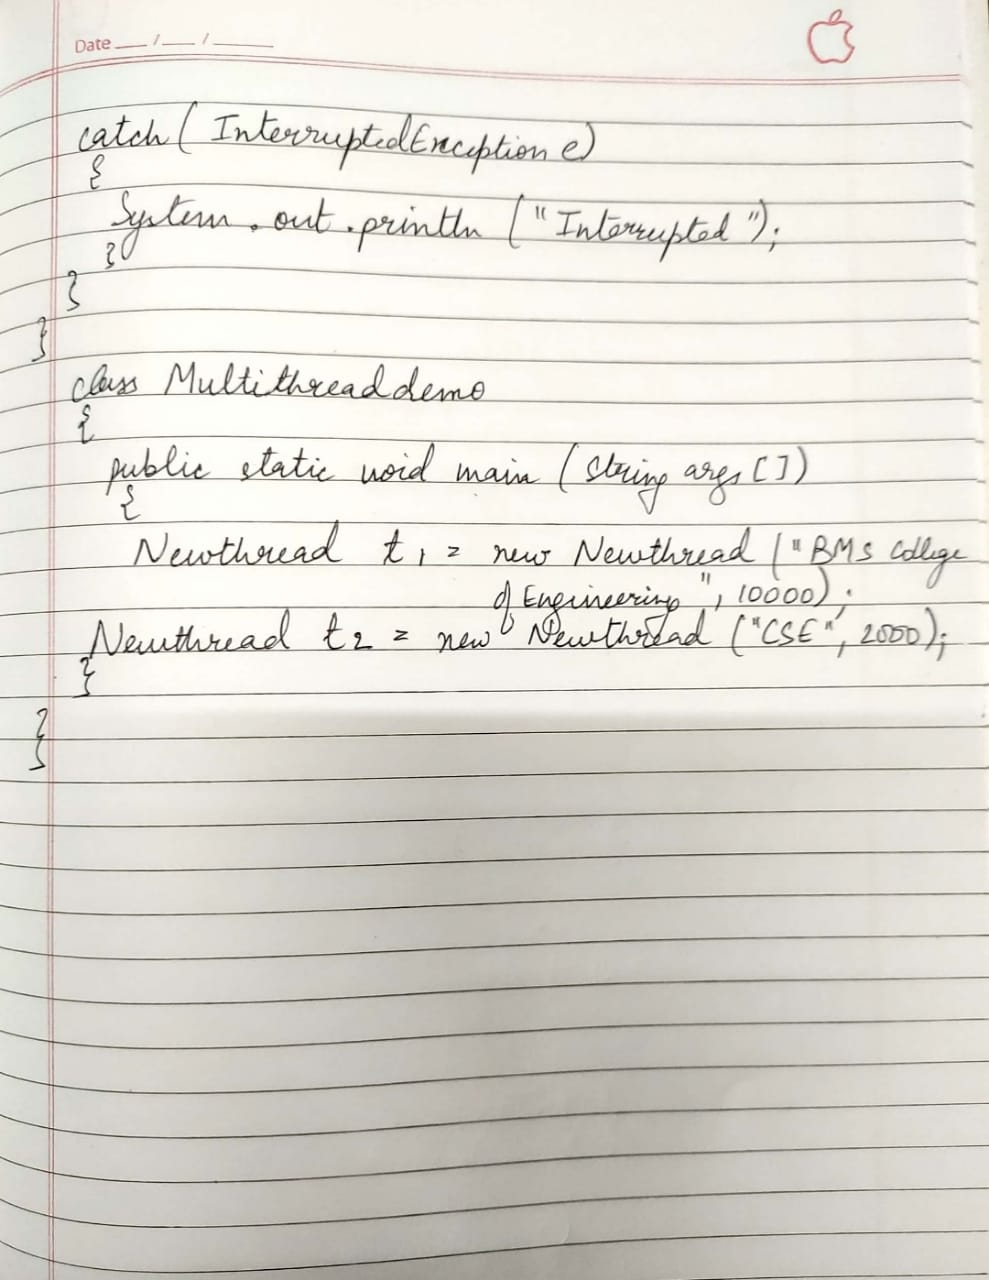 Date __/__/____
catch ( InterruptedException e)
{
System.out.println ("Interrupted");
}
}
}
class Multithreaddemo
{
public static void main (String args [])
{
Newthread t1 = new Newthread ("BMS College
of Engineering", 10000);
Newthread t2 = new Newthread ("CSE", 2000);
}
}